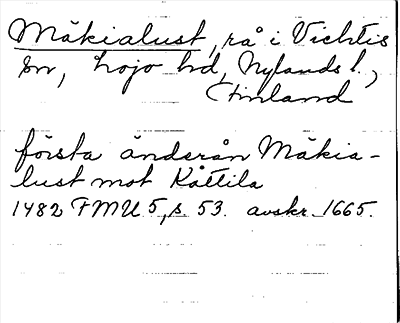 Mäkialust, rå i Vichtis
sn, Lojo hd, Nylands l.,
(Finland
första änderån Mäkia-
lust mot Kåttila
1482 FMU 5, s. 53. avskr. 1665.